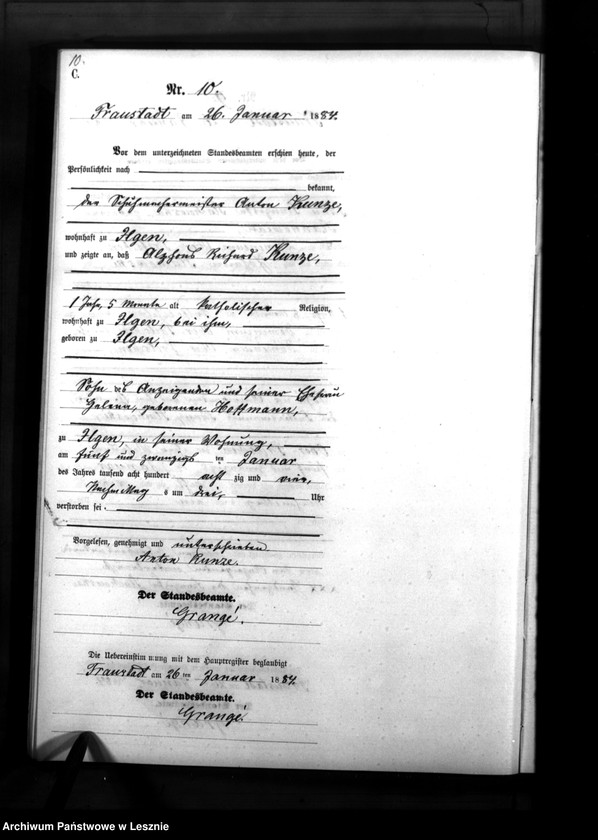 10.
C.
Nr. 10.
Fraustadt am 26. Januar 1884.
Vor dem unterzeichneten Standesbeamten erschien heute, der
Persönlichkeit nach
bekannt,
der Schuhmachermeister Anton Kunze,
wohnhaft zu Ilgen,
und zeigte an, daß Alphons Richard Kunze,
1 Jahr, 5 Monate alt katholischer Religion,
wohnhaft zu Ilgen, bei ihm,
geboren zu Ilgen,
Sohn des Anzeigenden und seiner Ehefrau
geborenen Hoffmann,
zu Ilgen, in seiner Wohnung,
am fünf und zwanzigsten Januar
des Jahres tausend acht hundert achtzig und vier,
Nachmittags um drei, Uhr
verstorben sei.
Vorgelesen, genehmigt und unterschrieben.
Anton Kunze.
Der Standesbeamte.
Grangé.
Die Uebereinstimmung mit dem Hauptregister beglaubigt
Fraustadt am 26ten Januar 1884.
Der Standesbeamte.
Grangé.
Archiwum Państwowe w Lesznie